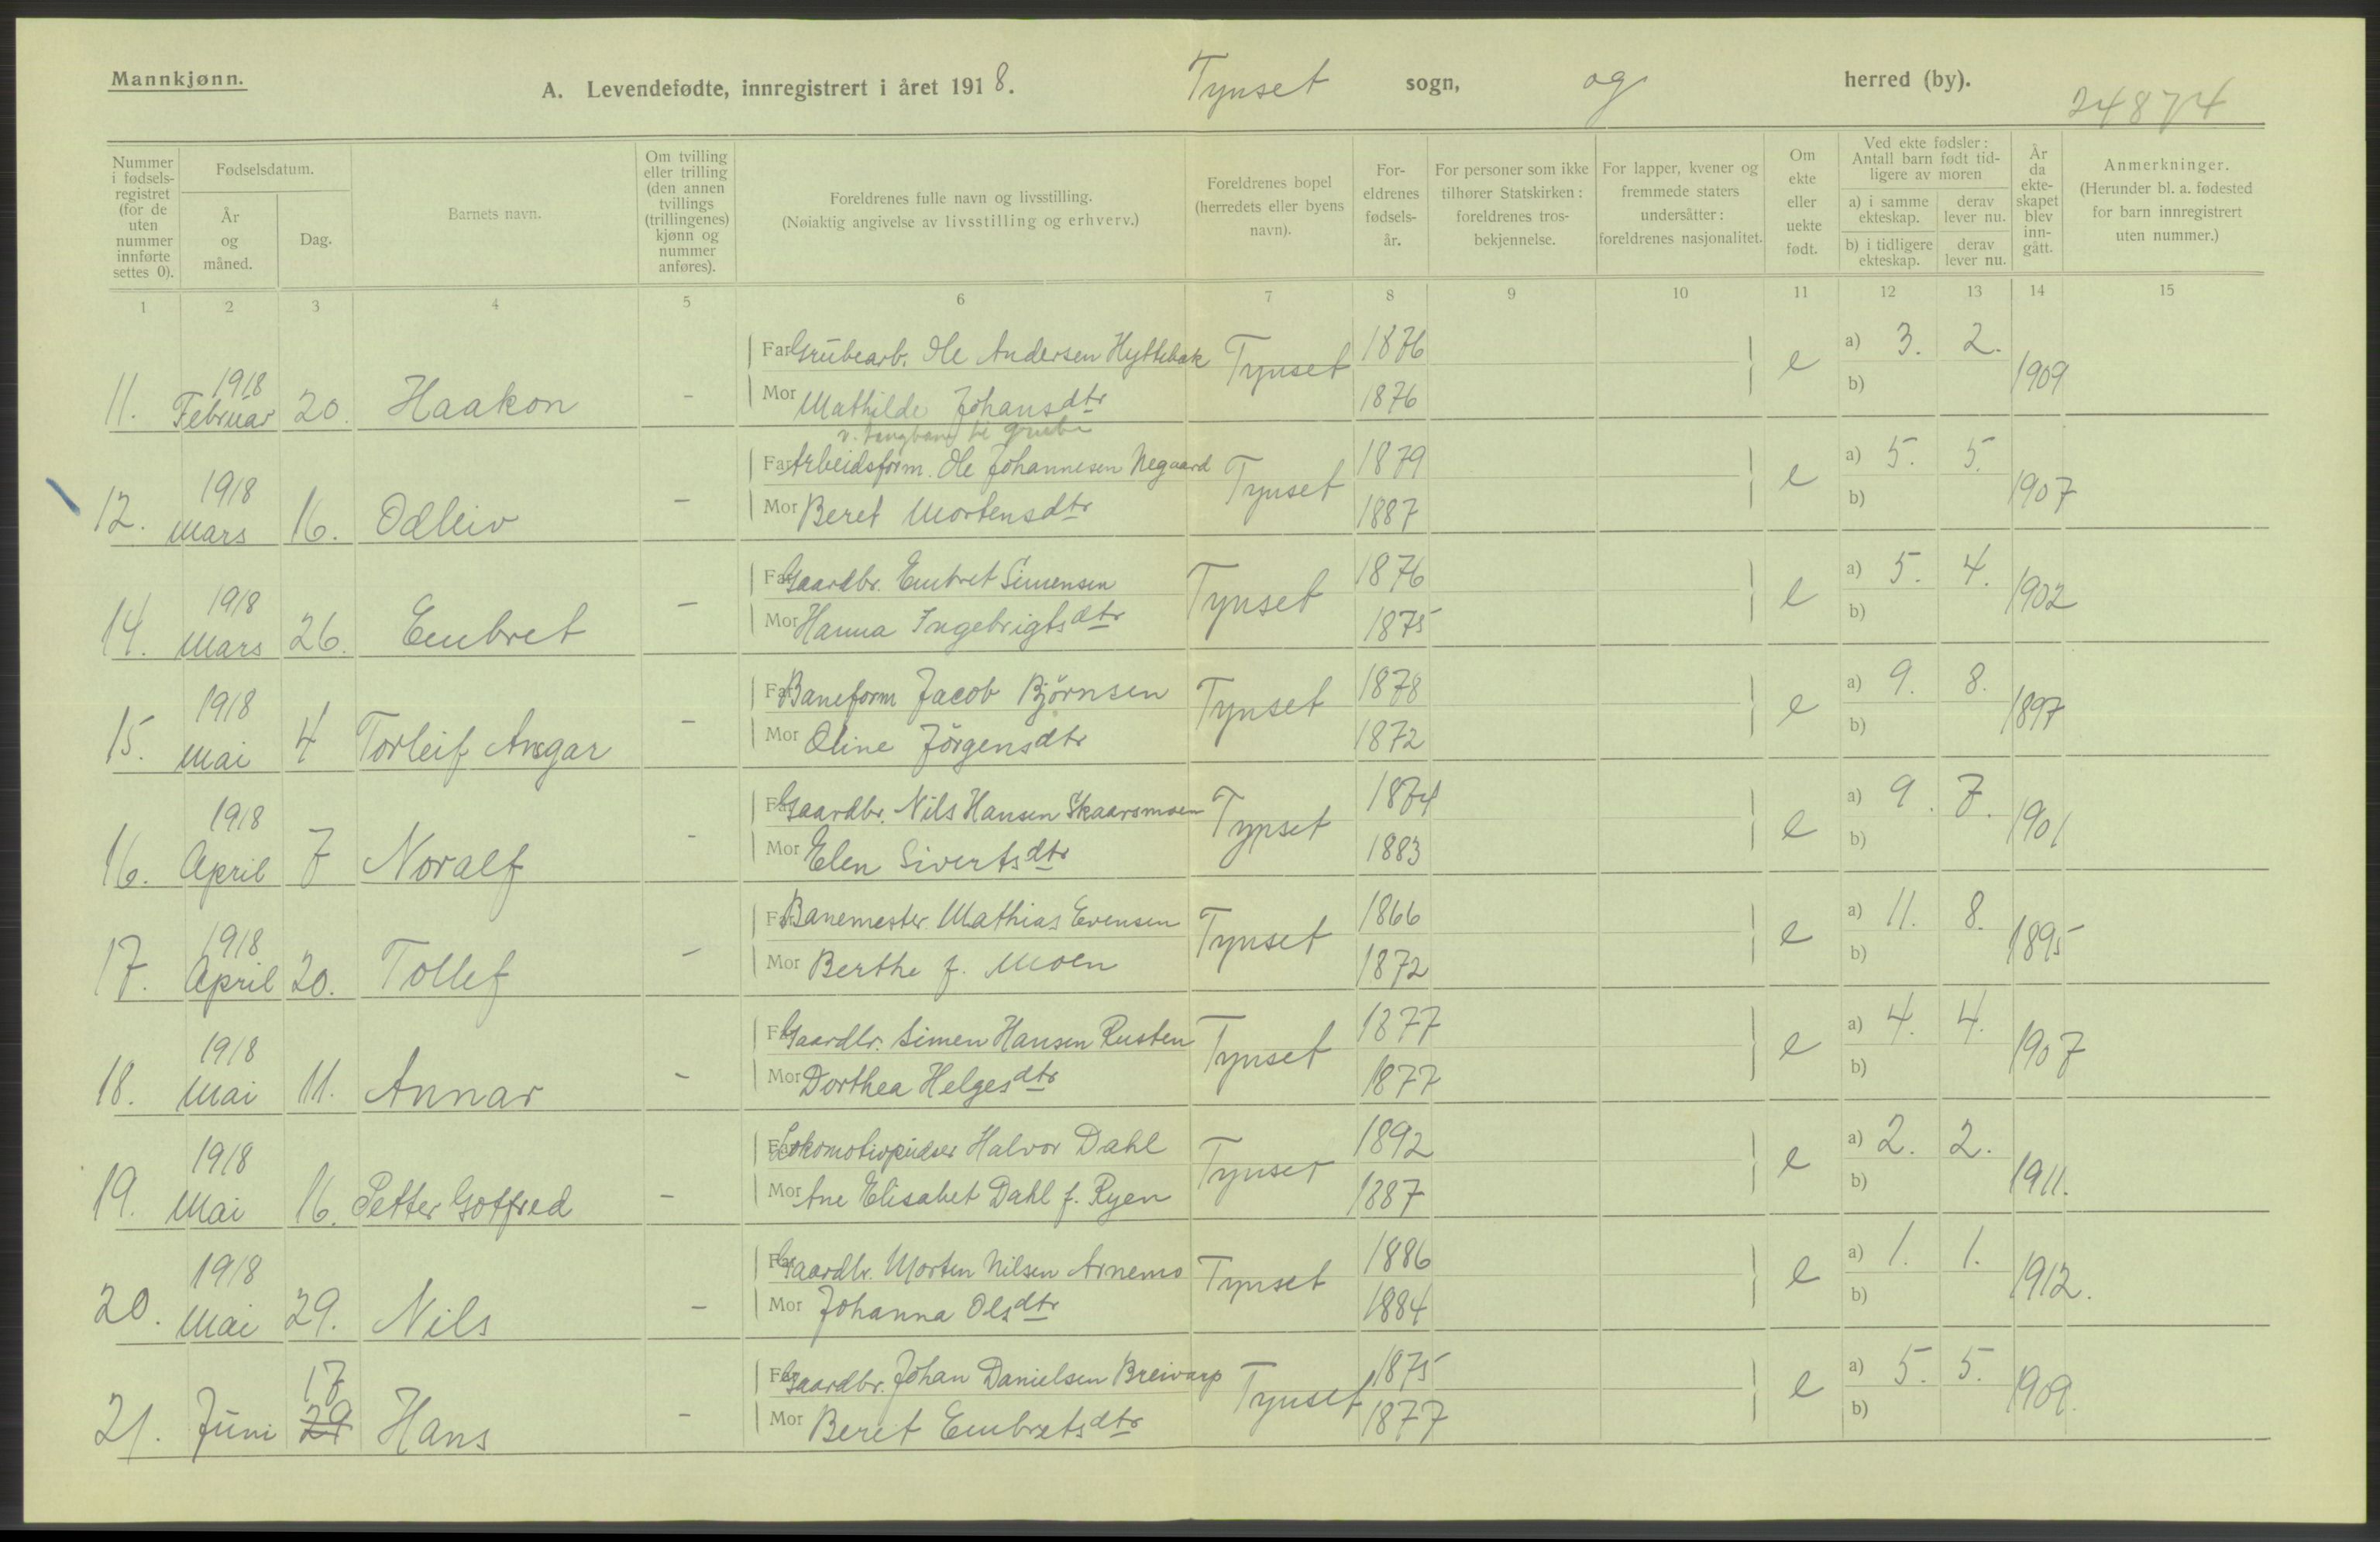 Mannkjønn.
A. Levendefødte, innregistrert i året 1918. Tynset sogn, og herred (by).
24874
Nummer i fødsels-registret (for de uten nummer innførte settes 0).
Fødselsdatum.
År og måned.
Dag.
Barnets navn.
Om tvilling eller trilling (den annen tvillings (trillingenes) kjønn og nummer anføres).
Foreldrenes fulle navn og livsstilling.
(Nøiaktig angivelse av livsstilling og erhverv.)
Foreldrenes bopel (herredets eller byens navn).
For-eldrenes fødsels-år.
For personer som ikke tilhører Statskirken: foreldrenes tros-bekjennelse.
For lapper, kvener og fremmede staters undersåtter: foreldrenes nasjonalitet.
Om ekte eller uekte født.
Ved ekte fødsler: Antall barn født tid-ligere av moren
a) i samme ekteskap. derav lever nu.
b) i tidligere ekteskap. derav lever nu.
År da ekte-skapet blev inn-gått.
Anmerkninger.
(Herunder bl. a. fødested for barn innregistrert uten nummer.)
1 2 3 4 5 6 7 8 9 10 11 12 13 14 15
Far Grubearb. Ole Andersen Hyttebak Tynset 1876 e a) 3. 2. 1909
11. 1918 Februar 20. Haakon - Mor Mathilde Johansdtr 1876 b)
v. taugbane til grube
Far Arbeidsform. Ole Johannesen Negaard Tynset 1879 e a) 5. 5. 1907
12. 1918 Mars 16. Odleiv - Mor Beret Mortensdtr 1887 b)
Far Gaardbr. Embret Simensen Tynset 1876 e a) 5. 4. 1902
14. 1918 Mars 26. Embret - Mor Hanna Ingebrigtsdtr 1875 b)
Far Baneform Jacob Björnsen Tynset 1878 e a) 9. 8. 1897
15. 1918 Mai 4 Torleif Ansgar - Mor Oline Jörgensdtr 1872 b)
Far Gaardbr. Nils Hansen Skaarsmoen Tynset 1874 e a) 9. 7. 1901
16. 1918 April 7 Noralf - Mor Elen Sivertsdtr 1883 b)
Far Banemester Mathias Evensen Tynset 1866 e a) 11. 8. 1895
17. 1918 April 20. Tollef - Mor Berthe f. Moen 1872 b)
Far Gaardbr. Simen Hansen Rusten Tynset 1877 e a) 4. 4. 1907
18. 1918 Mai 11. Annar - Mor Dorthea Helgesdtr 1877 b)
Far Lokomotivpudser Halvor Dahl Tynset 1892 e a) 2. 2. 1911.
19. 1918 Mai 16. Petter Gotfred - Mor Ane Elisabet Dahl f. Ryen 1887 b)
Far Gaardbr. Morten Nilsen Arnemo Tynset 1886 e a) 1. 1. 1912.
20. 1918 Mai 29. Nils - Mor Johanna Olsdtr 1884 b)
Far Gaardbr. Johan Danielsen Breivarp Tynset 1875 e a) 5. 5. 1909.
21. Juni 17 29 Hans - Mor Berit Embretsdtr 1877 b)